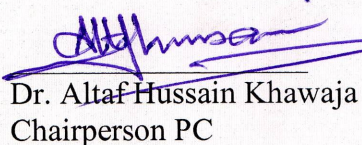 Dr. Altaf Hussain Khawaja
Chairperson PC